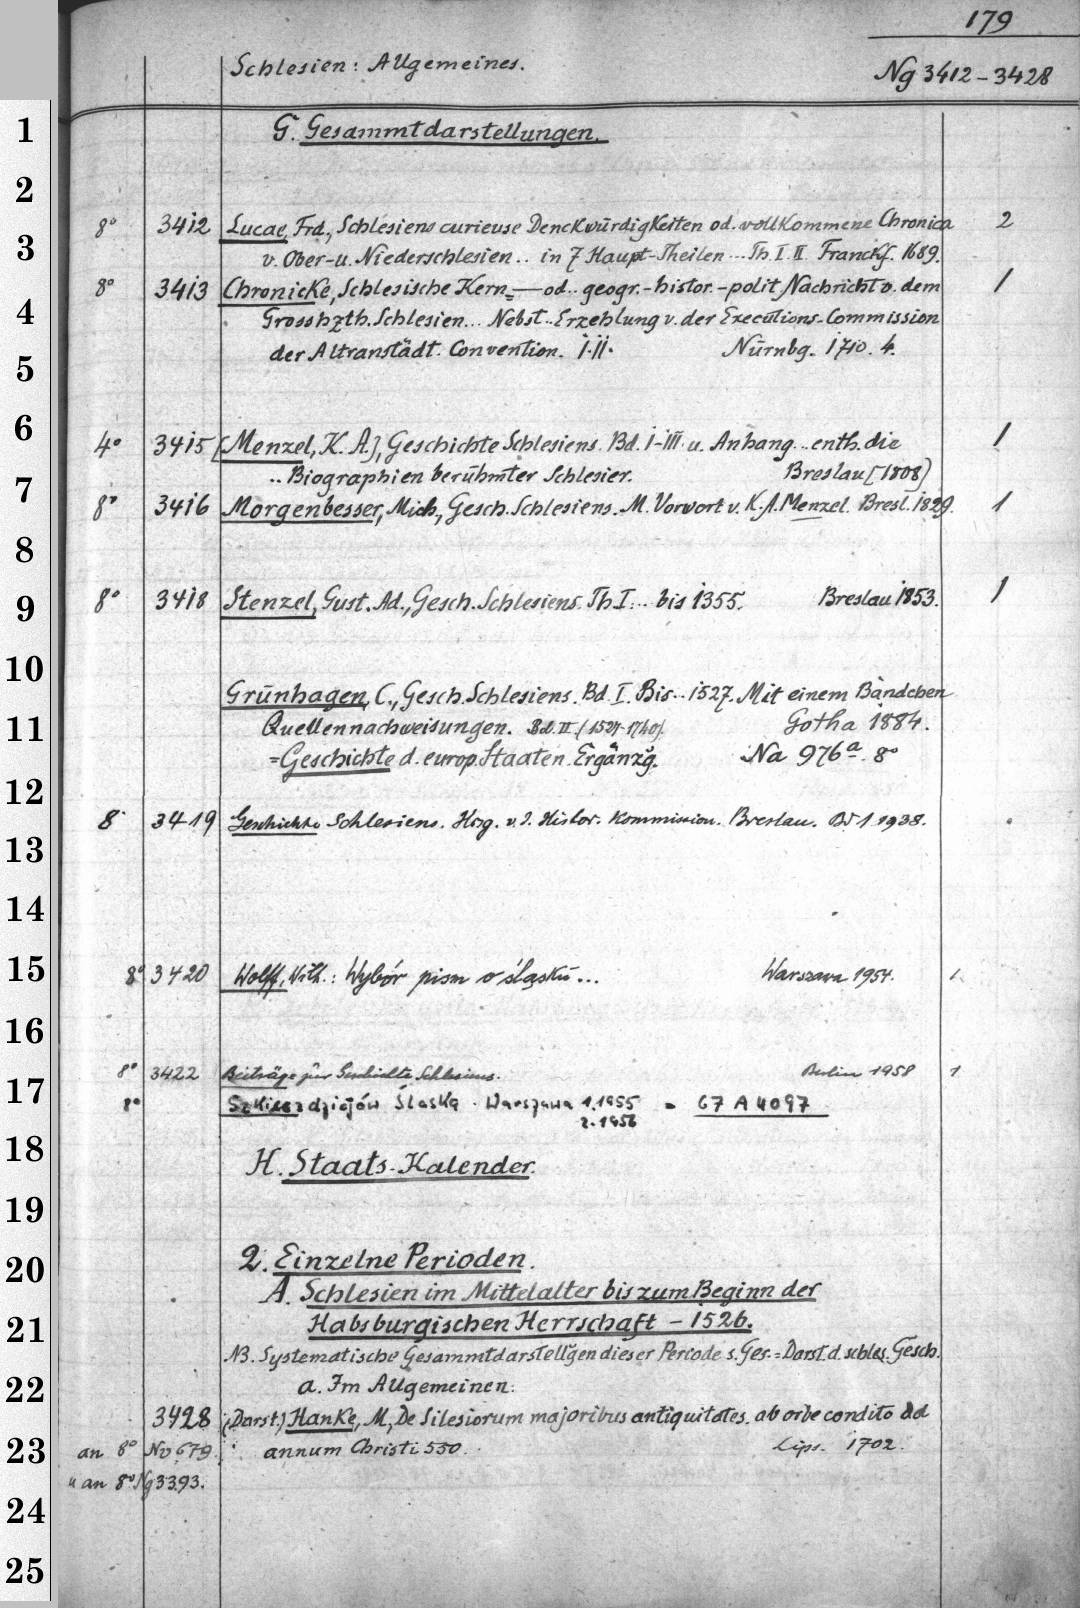 179
Schlesien: Allgemeines. Ng 3412-3428
1 G. Gesammtdarstellungen.
2
8° 3412 Lucae, Frd., Schlesiens curieuse Denckwürdigkeiten od. vollkommene Chronica 2
3 v. Ober- u. Niederschlesien.. in 7 Haupt-Theilen ... Th. I. II Franckf. 1689.
8° 3413 Chronicke, Schlesische Kern=— od.. geogr.-histor.-polit Nachricht v. dem 1
4 Grosshzth. Schlesien... Nebst.. Erzehlung v. der Executions-Commission
der Altranstädt. Convention. I.II. Nürnbg. 1710. 4.
5
6
4° 3415 [Menzel, K. A.], Geschichte Schlesiens. Bd. I-III u. Anhang.. enth. die 1
7 .. Biographien berühmter Schlesier. Breslau [1808]
8° 3416 Morgenbesser, Mich., Gesch. Schlesiens. M. Vorwort v. K. A. Menzel. Bresl. 1829. 1
8
9 8° 3418 Stenzel, Gust. Ad., Gesch. Schlesiens. Th I... bis 1355. Breslau 1853. 1
10
Grünhagen, C., Gesch. Schlesiens. Bd. I. Bis.. 1527. Mit einem Bändchen
11 Quellennachweisungen. Bd. II. (1527-1740). Gotha 1884.
=Geschichte d. europ. Staaten. Ergänzg. Na 976ª. 8°
12
8° 3419 Geschichte Schlesiens. Hrsg. v. d. Histor. Kommission. Breslau. Bd 1. 1938.
13
14
15 8° 3420 Wolff, Wilh.: Wybór pism o śląsku... Warszawa 1954. 1.
16
8° 3422 Beiträge zur Geschichte Schlesiens. Berlin 1958 1
17 8° Szkice z dziejów Śląska. Warszawa 1. 1955 = 67 A 4097
2. 1956
18 H. Staats-Kalender.
19
20 2. Einzelne Perioden.
A. Schlesien im Mittelalter bis zum Beginn der
21 Habsburgischen Herrschaft - 1526.
NB. Systematische Gesammtdarstellgen dieser Periode s. Ges.=Darst. d. schles. Gesch.
22 a. Im Allgemeinen.
3428 (Darst.) Hanke, M., De Silesiorum majoribus antiquitates. ab orbe condito ad
23 an 8° Nv 679. annum Christi 550. Lips. 1702.
u an 8° Ng 3393.
24
25